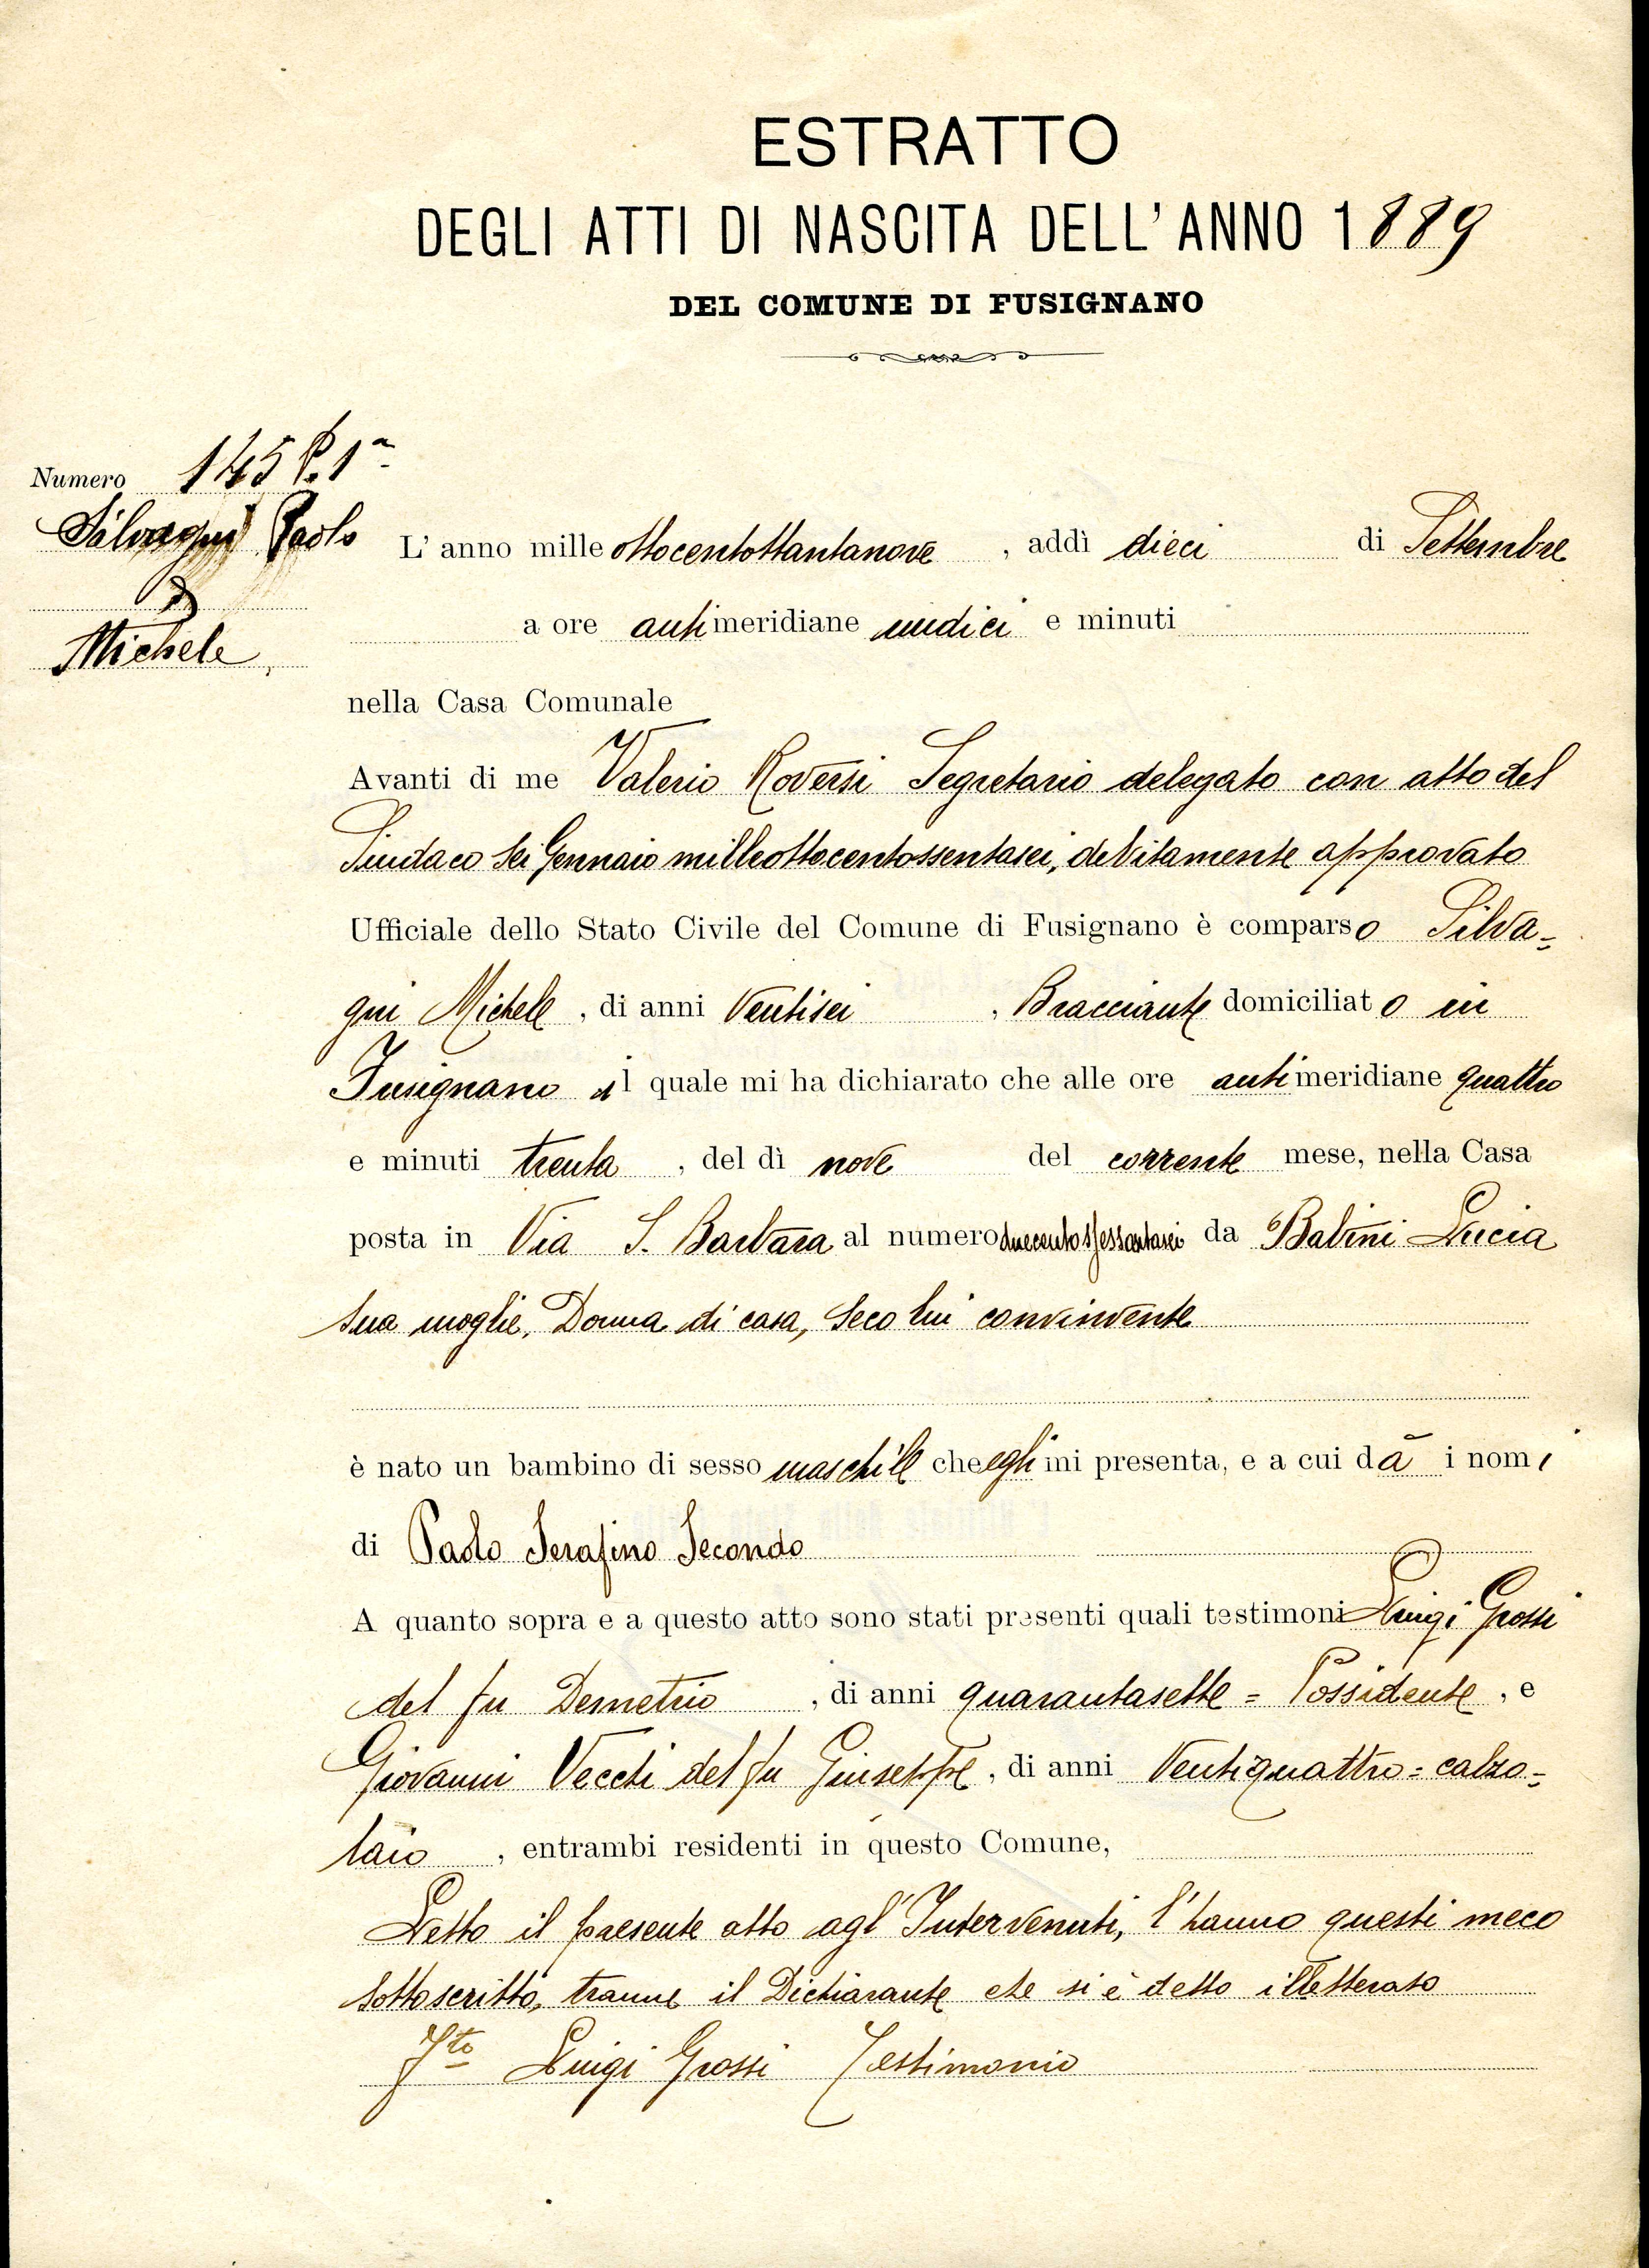 ESTRATTO
DEGLI ATTI DI NASCITA DELL'ANNO 1889
DEL COMUNE DI FUSIGNANO
Numero 145 P. 1ª
Silvagni Paolo
di
Michele
L'anno mille ottocentottantanove, addì dieci di Settembre
a ore antimeridiane undici e minuti
nella Casa Comunale
Avanti di me Valerio Roversi Segretario delegato con atto del
Sindaco sei Gennaio milleottocentossentasei, debitamente approvato
Ufficiale dello Stato Civile del Comune di Fusignano è comparso Silva=
gni Michele, di anni Ventisei, Bracciante domiciliato in
Fusignano il quale mi ha dichiarato che alle ore antimeridiane quattro
e minuti trenta, del dì nove del corrente mese, nella Casa
posta in Via S. Barbara al numero duecentosessantasei da Babini Lucia
sua moglie, Donna di casa, seco lui convinvente
è nato un bambino di sesso maschile che egli mi presenta, e a cui dà i nomi
di Paolo Serafino Secondo
A quanto sopra e a questo atto sono stati presenti quali testimoni Luigi Grossi
del fu Demetrio, di anni quarantasette = Possidente, e
Giovanni Vecchi del fu Giuseppe, di anni Ventiquattro = calzo=
laio, entrambi residenti in questo Comune,
Letto il presente atto agl'Intervenuti, l'hanno questi meco
sottoscritto, tranne il Dichiarante che si è detto illetterato
Fto Luigi Grossi Testimonio